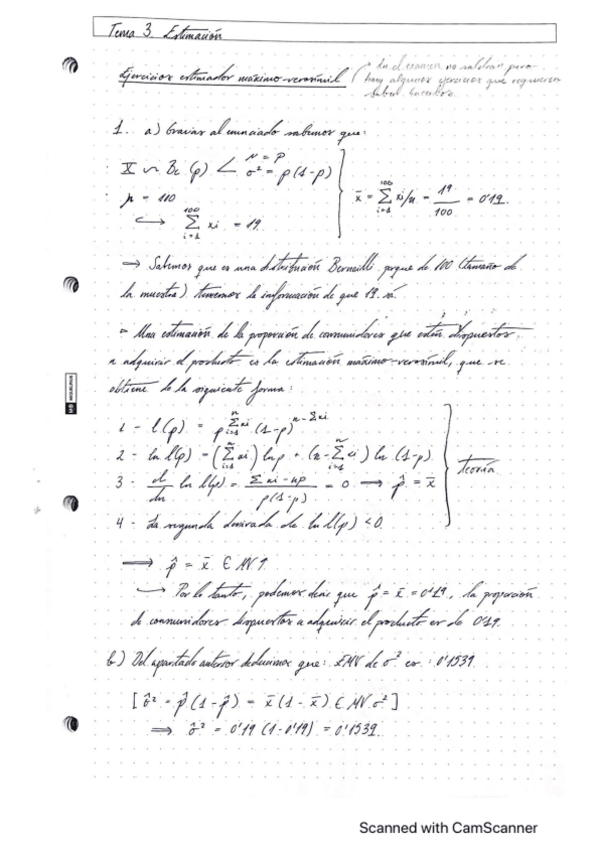 Tema 3. Estimación
Ejercicios estimador máximo-verosímil
En el examen no saldrán pero
hay algunos ejercicios que requieren
saber hacerlos.
1. a) Gracias al enunciado sabemos que:
X ~ Be (p) < μ = p
σ² = p(1-p)
n = 100
↪ Σ xi = 19
i=1
100
x̄ = Σ xi/n = 19/100 = 0'19.
→ Sabemos que es una distribución Bernoulli porque de 100 (tamaño de
la muestra) tenemos la información de que 19 sí.
Una estimación de la proporción de consumidores que estén dispuestos
a adquirir el producto es la estimación máximo-verosímil, que se
obtiene de la siguiente forma:
1 - l(p) = p^Σxi (1-p)^n-Σxi
2 - ln l(p) = (Σ xi) ln p + (n - Σ xi) ln (1-p)
3 - d/dn ln l(p) = Σxi - np / p(1-p) = 0 → p̂ = x̄
4 - La segunda derivada de ln l(p) < 0
teoría
⟹ p̂ = x̄ ∈ MV
↪ Por lo tanto, podemos decir que p̂ = x̄ = 0'19, la proporción
de consumidores dispuestos a adquirir el producto es de 0'19.
b) Del apartado anterior deducimos que: EMV de σ² es: 0'1539.
[σ̂² = p̂(1-p̂) = x̄(1-x̄) ∈ MV σ²]
⟹ σ̂² = 0'19 (1-0'19) = 0'1539.
WUOLAH
Scanned with CamScanner